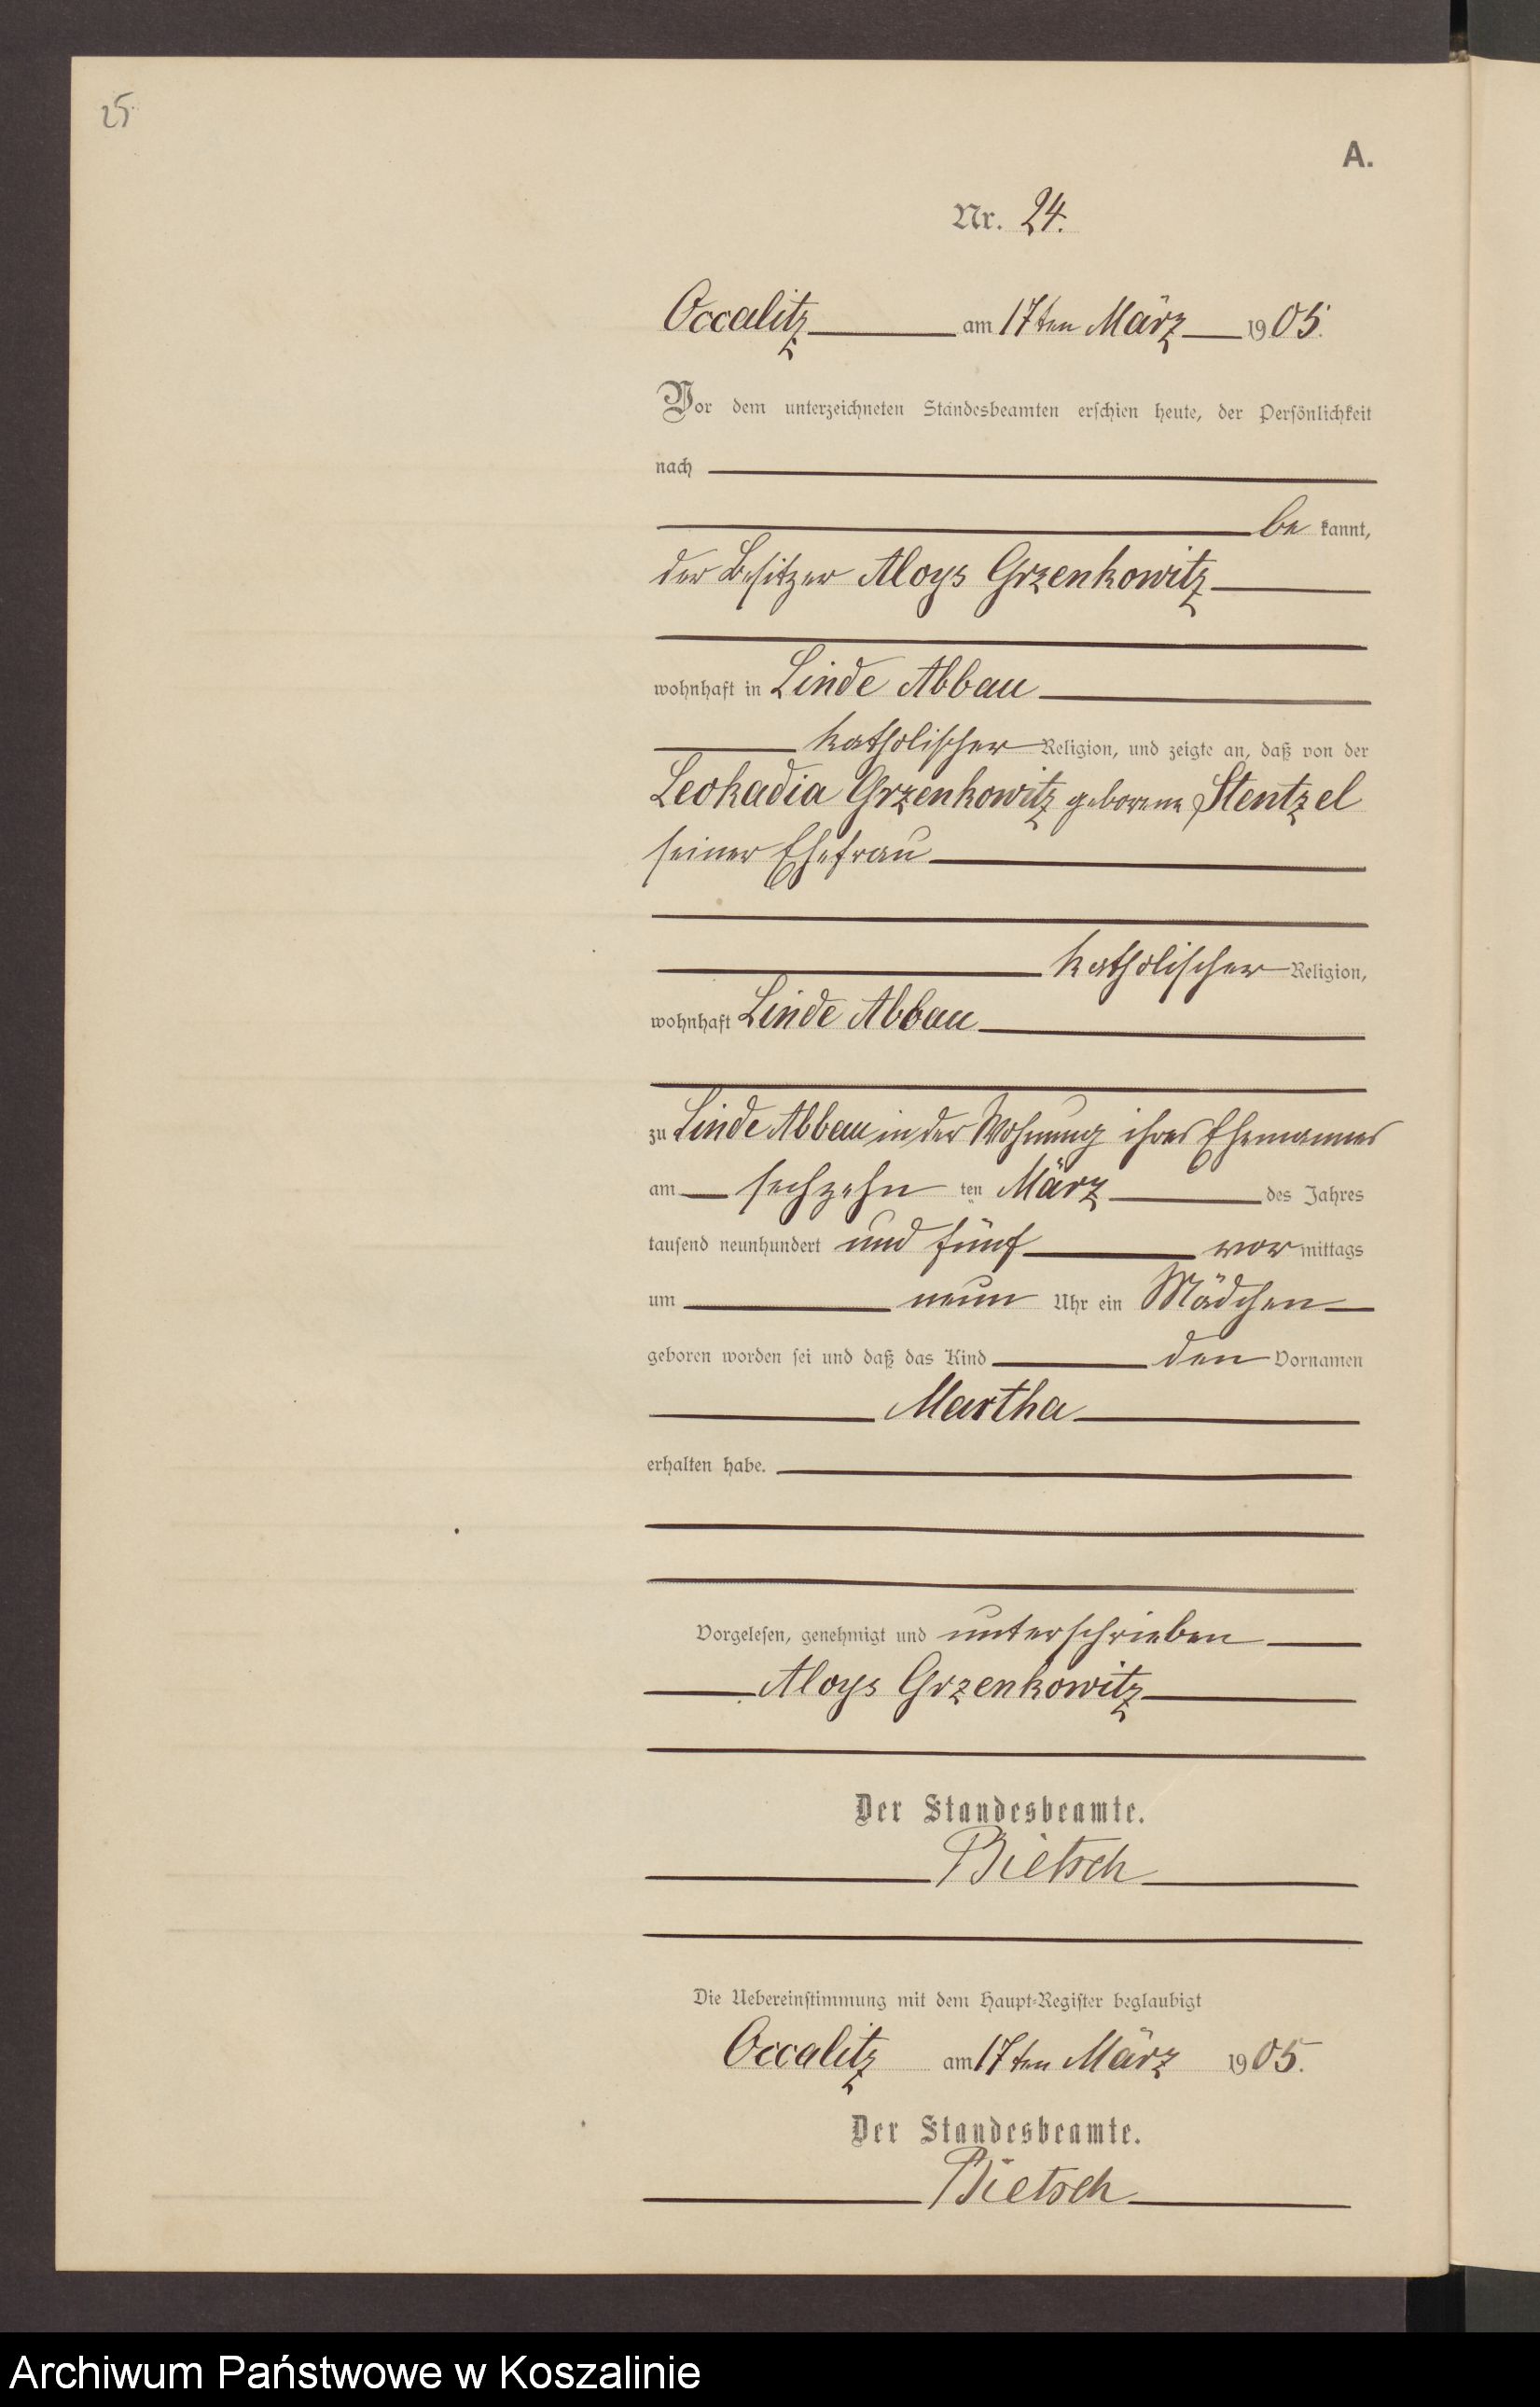 25.
A.
Nr. 24.
Occalitz am 17ten März 1905.
Vor dem unterzeichneten Standesbeamten erschien heute, der Persönlichkeit
nach
be kannt,
der Besitzer Aloys Grzenkowitz
wohnhaft in Linde Abbau
katholischer Religion, und zeigte an, daß von der
Leokadia Grzenkowitz geborene Stentzel
seiner Ehefrau
katholischer Religion,
wohnhaft Linde Abbau
zu Linde Abbau in der Wohnung ihres Ehemannes
am sechzehn ten März des Jahres
tausend neunhundert und fünf vor mittags
um neun Uhr ein Mädchen
geboren worden sei und daß das Kind den Vornamen
Martha
erhalten habe.
Vorgelesen, genehmigt und unterschrieben
Aloys Grzenkowitz
Der Standesbeamte.
Bietsch
Die Uebereinstimmung mit dem Haupt-Register beglaubigt
Occalitz am 17ten März 1905.
Der Standesbeamte.
Bietsch
Archiwum Państwowe w Koszalinie